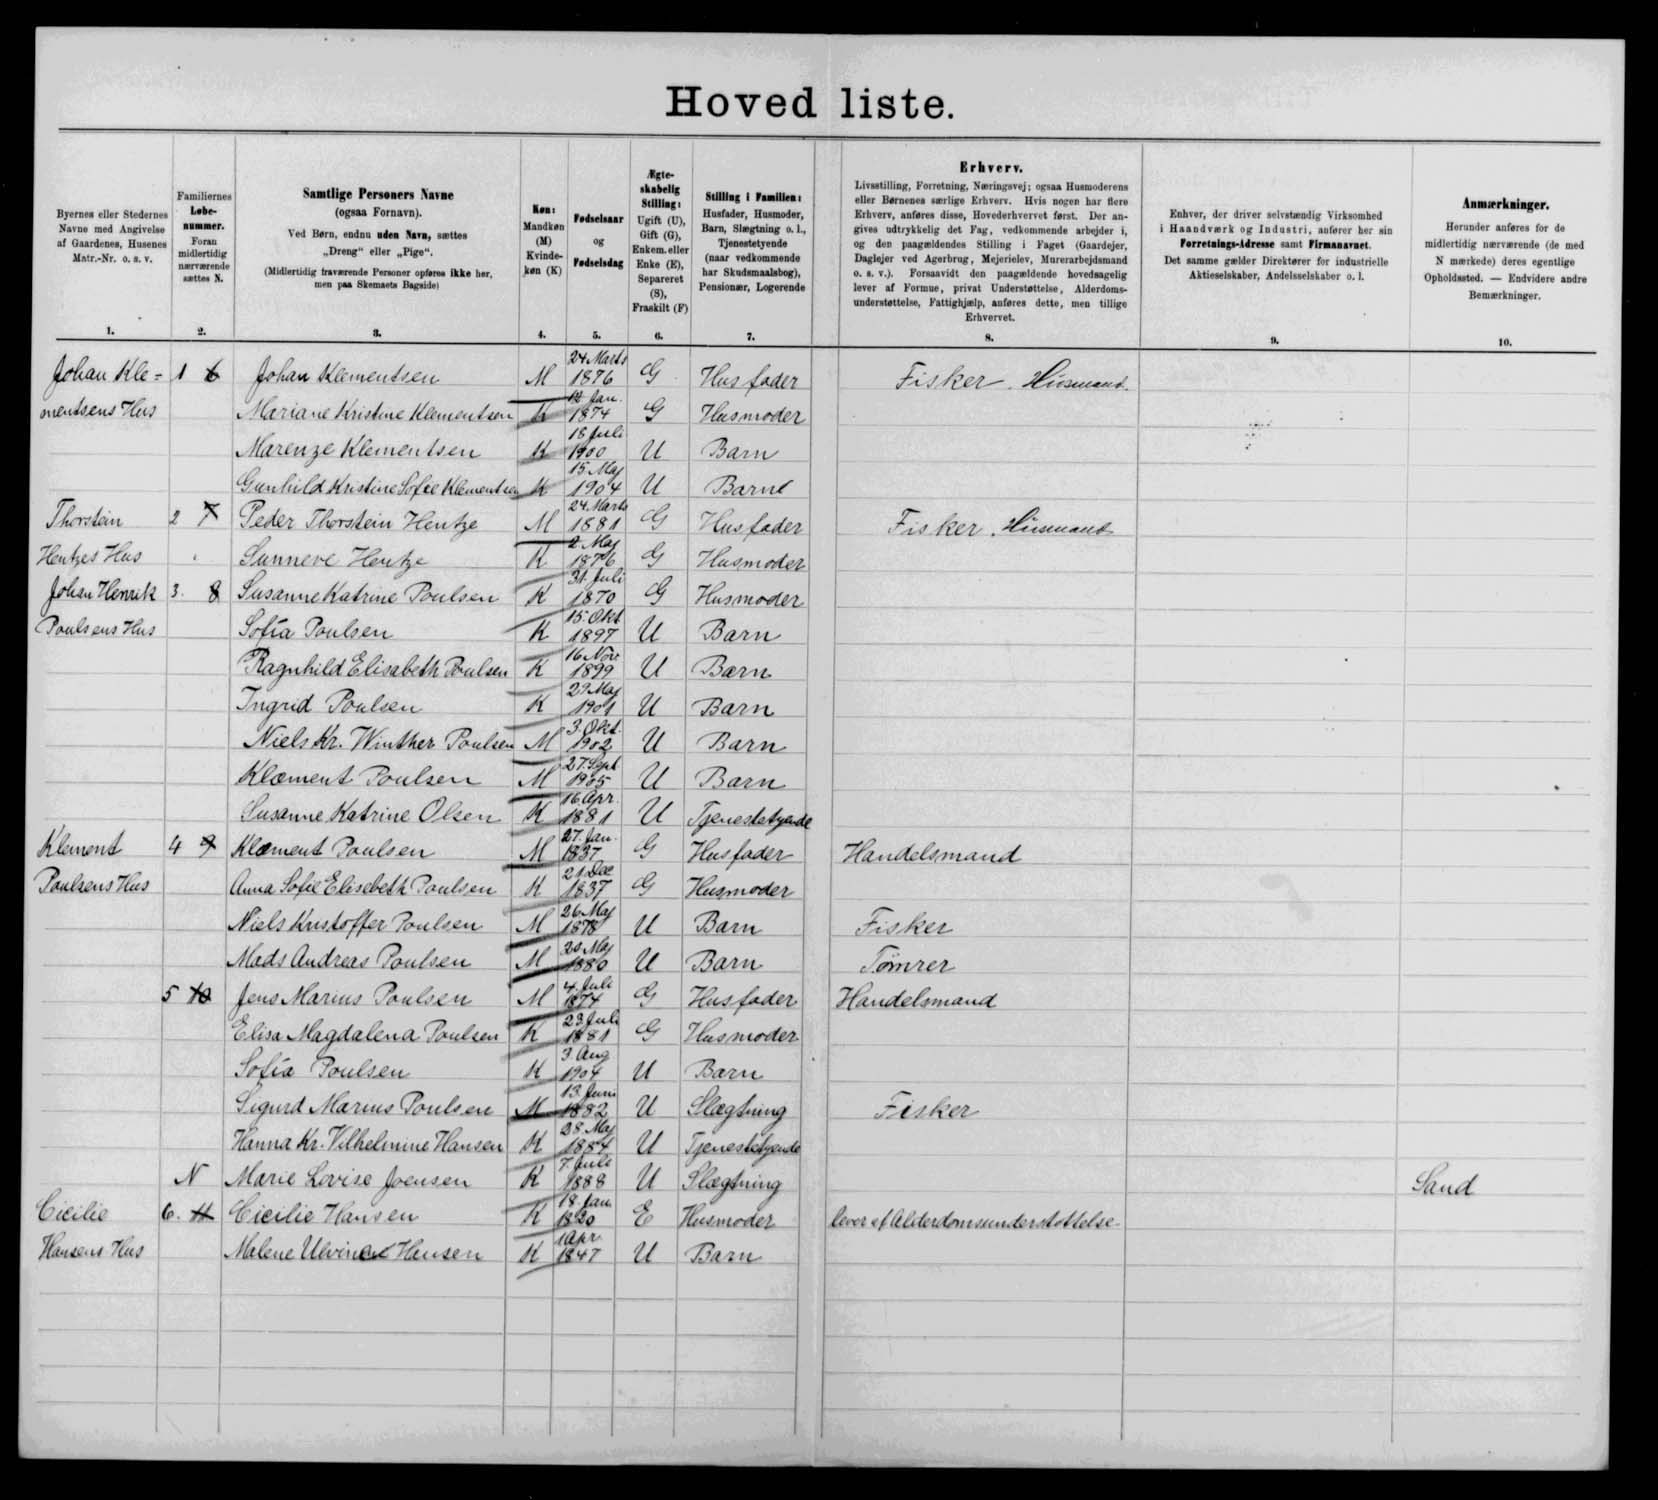 Hoved liste.
Byernes eller Stedernes
Navne med Angivelse
af Gaardenes, Husenes
Matr.-Nr. o. s. v.
1.
Familiernes
Løbe-
nummer.
Foran
midlertidig
nærværende
sættes N.
2.
Samtlige Personers Navne
(ogsaa Fornavn).
Ved Børn, endnu uden Navn, sættes
„Dreng" eller „Pige".
(Midlertidig fraværende Personer opføres ikke her,
men paa Skemaets Bagside)
3.
Køn:
Mandkøn
(M)
Kvinde-
køn (K)
4.
Fødselsaar
og
Fødselsdag
5.
Ægte-
skabelig
Stilling:
Ugift (U),
Gift (G),
Enkem. eller
Enke (E),
Separeret
(S),
Fraskilt (F)
6.
Stilling i Familien:
Husfader, Husmoder,
Barn, Slægtning o. l.,
Tjenestetyende
(naar vedkommende
har Skudsmaalsbog),
Pensionær, Logerende
7.
Erhverv.
Livsstilling, Forretning, Næringsvej; ogsaa Husmoderens
eller Børnenes særlige Erhverv. Hvis nogen har flere
Erhverv, anføres disse, Hovederhvervet først. Der an-
gives udtrykkelig det Fag, vedkommende arbejder i,
og den paagældendes Stilling i Faget (Gaardejer,
Daglejer ved Agerbrug, Mejerielev, Murerarbejdsmand
o. s. v.). Forsaavidt den paagældende hovedsagelig
lever af Formue, privat Understøttelse, Alderdoms-
understøttelse, Fattighjælp, anføres dette, men tillige
Erhvervet.
8.
Enhver, der driver selvstændig Virksomhed
i Haandværk og Industri, anfører her sin
Forretnings-Adresse samt Firmanavnet.
Det samme gælder Direktører for industrielle
Aktieselskaber, Andelsselskaber o. l.
9.
Anmærkninger.
Herunder anføres for de
midlertidig nærværende (de med
N mærkede) deres egentlige
Opholdssted. — Endvidere andre
Bemærkninger.
10.
Johan Kle- 1 6 Johan Klementsen M 24 Marts 1876 G Husfader Fisker. Husmand.
mentsens Hus Mariane Kristine Klementsen K 12 Jan. 1874 G Husmoder
Marenze Klementsen K 18 Juli 1900 U Barn
Gunhild Kristine Sofie Klementsen K 15. Maj 1904 U Barn
Thorstein 2 7 Peder Thorstein Hentze M 24 Marts 1881 G Husfader Fisker. Husmand
Hentzes Hus Sunneve Hentze K 2 Maj 1876 G Husmoder
Johan Henrik 3. 8 Susanne Katrine Poulsen K 31. Juli 1870 G Husmoder
Poulsens Hus Sofia Poulsen K 15. Okt 1897 U Barn
Ragnhild Elisabeth Poulsen K 16 Nov 1899 U Barn
Ingrid Poulsen K 29 Maj 1901 U Barn
Niels Kr. Winther Poulsen M 3. Okt. 1902 U Barn
Klæment Poulsen M 27. Sept 1905 U Barn
Susanne Katrine Olsen K 16 Apr. 1881 U Tjenestetyende
Klement 4 9 Klæment Poulsen M 27. Jan. 1837 G Husfader Handelsmand
Poulsens Hus Anna Sofie Elisebeth Poulsen K 21 Dec 1837 G Husmoder
Niels Kristoffer Poulsen M 26 Maj 1878 U Barn Fisker
Mads Andreas Poulsen M 20 Maj 1880 U Barn Tømrer
5 10 Jens Marius Poulsen M 4. Juli 1874 G Husfader Handelsmand
Elisa Magdalena Poulsen K 23 Juli 1881 G Husmoder
Sofia Poulsen K 3. Aug 1904 U Barn
Sigurd Marius Poulsen M 13. Juni 1882 U Slægtning Fisker
Hanna Kr. Vilhelmine Hansen K 28. Maj 1884 U Tjenestetyende
N Marie Lovise Joensen K 7. Juli 1888 U Slægtning Sand
Cicilie 6. 11 Cicilie Hansen K 18. Jan 1820 E Husmoder lever af Alderdomsunderstøttelse
Hansens Hus Malene Ulvine Hansen K 1 Apr 1847 U Barn